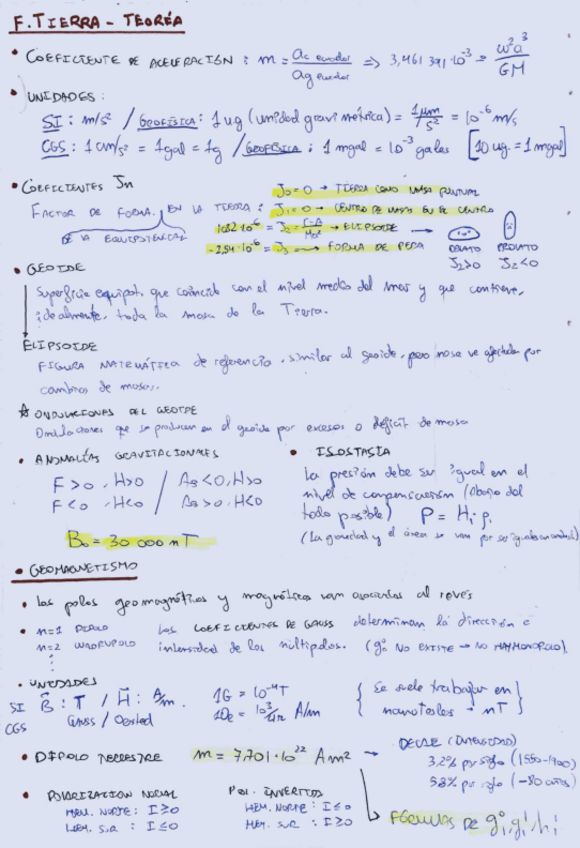 F. TIERRA - TEORÍA
• COEFICIENTE DE ACELERACIÓN : m = ac ecuador / ag ecuador => 3,461 391·10⁻³ = ω²a³ / GM
• UNIDADES :
SI : m/s² / GEOFÍSICA : 1 ug (unidad gravimétrica) = 1μm / s² = 10⁻⁶ m/s
CGS : 1 cm/s² = 1 gal = 1g / GEOFÍSICA : 1 mgal = 10⁻³ gales [10 ug. = 1 mgal]
• COEFICIENTES Jn
J₀ = 0 → TIERRA COMO MASA PUNTUAL
FACTOR DE FORMA EN LA TIERRA : J₁ = 0 → CENTRO DE MASAS EN EL CENTRO
DE LA EQUIPOTENCIAL
1082·10⁻⁶ = J₂ = C-A / Ma² → ELIPSOIDE → OBLATO PROLATO
-2,54·10⁻⁶ = J₃ → FORMA DE PERA J₂>0 J₂<0
• GEOIDE
Superficie equipot. que coincide con el nivel medio del mar y que contiene,
idealmente, toda la masa de la Tierra.
ELIPSOIDE
FIGURA MATEMÁTICA de referencia, similar al geoide, pero no se ve afectada por
cambios de masa...
☆ ONDULACIONES DEL GEOIDE
Ondulaciones que se producen en el geoide por excesos o déficit de masa
• ANOMALÍAS GRAVITACIONALES
F>0, H>0 / AB<0, H>0
F<0, H<0 / AB>0, H<0
B₀ = 30 000 nT
• ISOSTASIA
La presión debe ser igual en el
nivel de compensación (abajo del
todo posible) P = Hᵢ ρᵢ
(La gravedad y el área se van por ser iguales en ambos)
• GEOMAGNETISMO
• Los polos geomagnéticos y magnéticos van asociados al revés
• n=1 DIPOLO Los COEFICIENTES DE GAUSS determinan la dirección e
n=2 CUADRUPOLO intensidad de los multipolos. (g₀⁰ NO EXISTE → NO HAY MONOPOLO).
• UNIDADES
SI B : T / H : A/m. 1G = 10⁻⁴T
CGS Gauss / Oersted 1Oe = 10³/4π A/m
{ Se suele trabajar en
nanoteslas → nT }
• DIPOLO TERRESTRE m = 7.701·10²² Am² →
DECAE (INTENSIDAD)
3,2% por siglo (1550-1900)
5,8% por siglo (-80 años)
FÓRMULAS DE g₁⁰, g₁¹, h₁¹
• POLARIZACIÓN NORMAL
HEM. NORTE : I≥0
HEM. SUR : I≤0
POL. INVERTIDA
HEM. NORTE : I≤0
HEM. SUR : I≥0